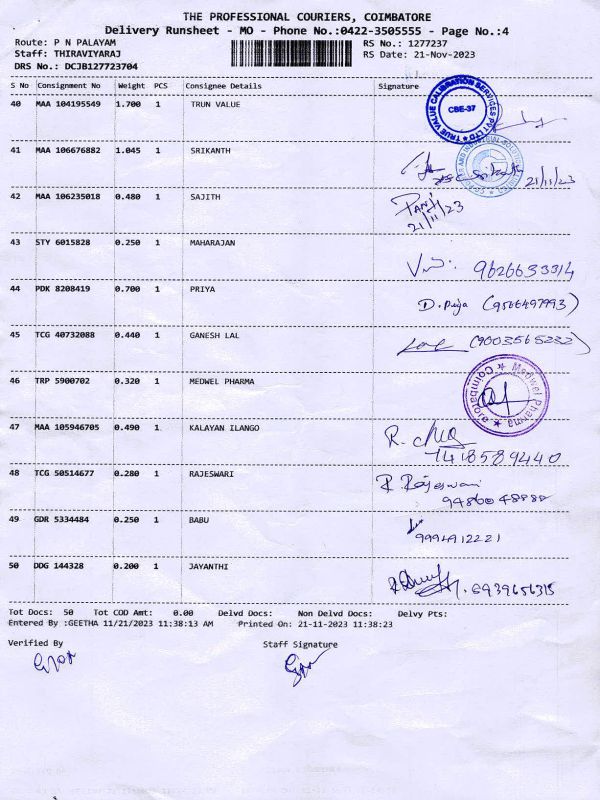 THE PROFESSIONAL COURIERS, COIMBATORE
Delivery Runsheet - MO - Phone No.:0422-3505555 - Page No.:4
Route: P N PALAYAM RS No.: 1277237
Staff: THIRAVIYARAJ RS Date: 21-Nov-2023
DRS No.: DCJB127723704
S No Consignment No Weight PCS Consignee Details Signature
40 MAA 104195549 1.700 1 TRUN VALUE
TRUE VALUE CALIBRATION SERVICES PVT LTD
CBE-37
41 MAA 106676882 1.045 1 SRIKANTH
21/11/23
42 MAA 106235018 0.480 1 SAJITH
21/11/23
43 STY 6015828 0.250 1 MAHARAJAN
9626633314
44 PDK 8208419 0.700 1 PRIYA
D. Priya (9566497993)
45 TCG 40732088 0.440 1 GANESH LAL
(9003565232)
46 TRP 5900702 0.320 1 MEDWEL PHARMA
Medwel Pharma
Coimbatore
47 MAA 105946705 0.490 1 KALAYAN ILANGO
7418589440
48 TCG 50514677 0.280 1 RAJESWARI
R. Rajeswari
9486048888
49 GDR 5334484 0.250 1 BABU
9994912221
50 DDG 144328 0.200 1 JAYANTHI
Tot Docs: 50 Tot COD Amt: 0.00 Delvd Docs: Non Delvd Docs: Delvy Pts:
Entered By :GEETHA 11/21/2023 11:38:13 AM Printed On: 21-11-2023 11:38:23
Verified By Staff Signature